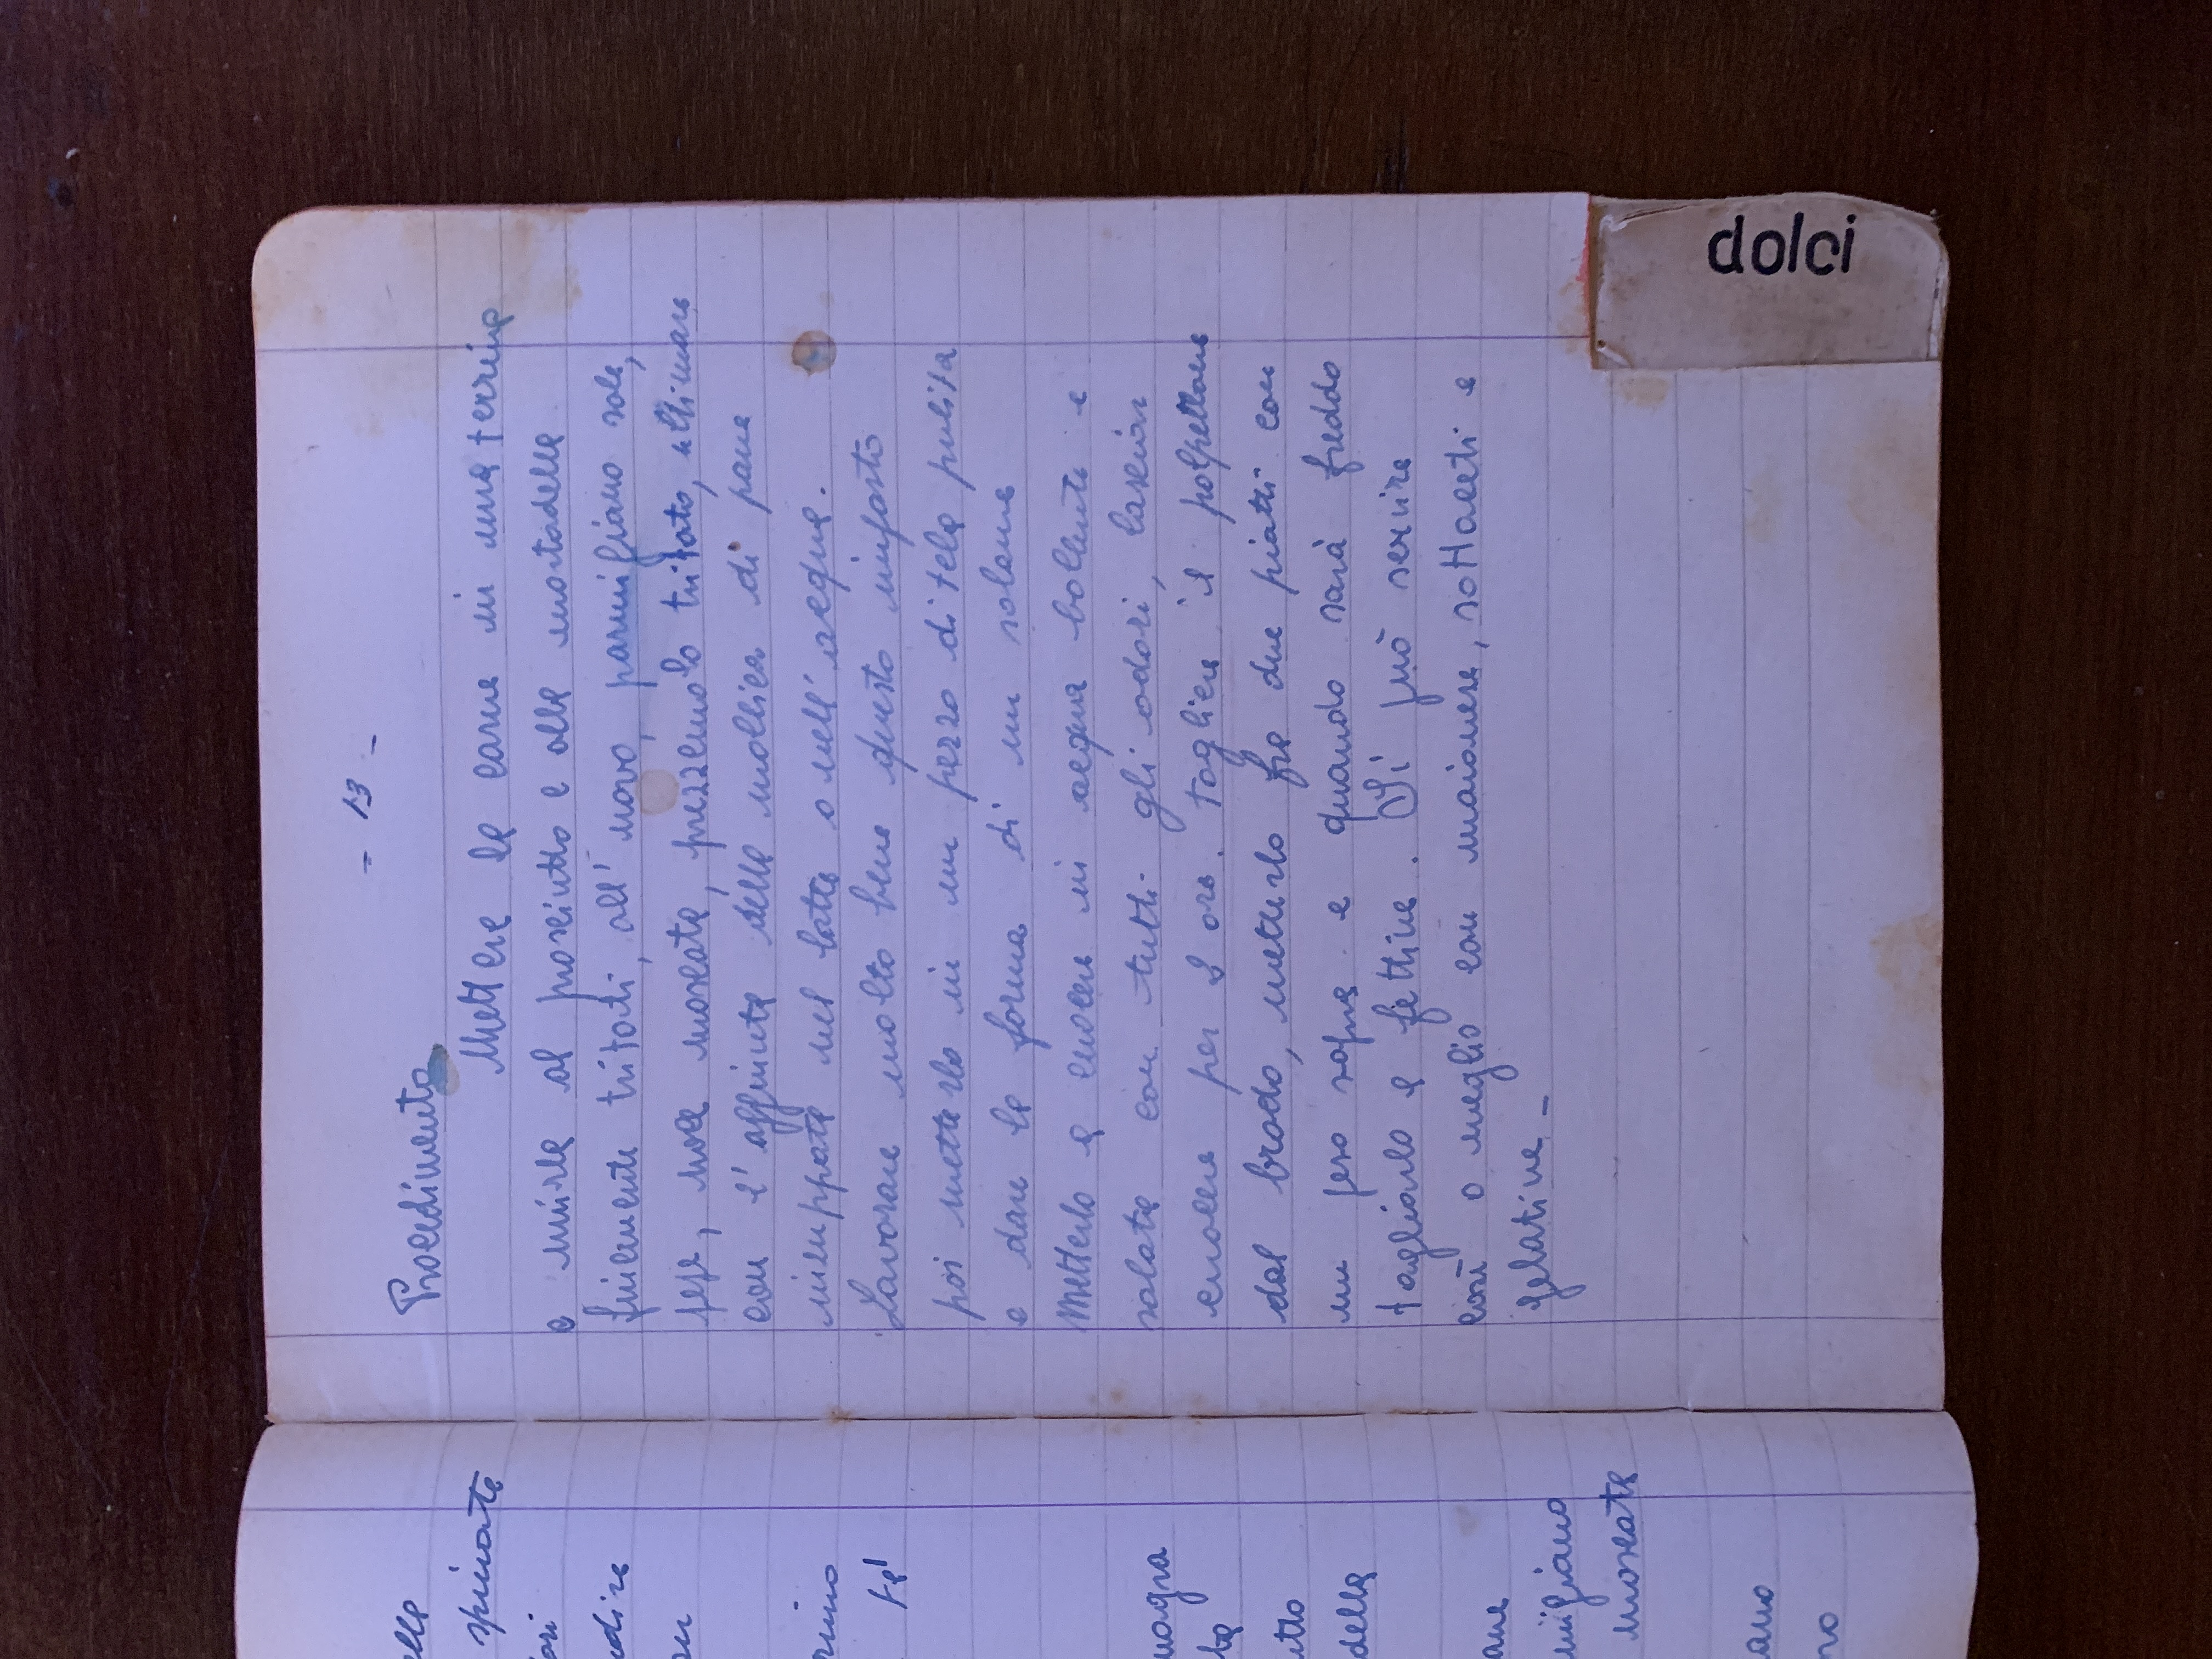 elle
spinate
ori
dire
rino
te'
magra
tto
della
ane
migiano
moscata
ano
- 13 -
Procedimento
Mettere la carne in una terrina
e unirla al prosciutto e alla mortadella
finemente tritati, all' uovo, parmigiano sale,
pepe, noce moscata, prezzemolo tritato, ultimare
con l' aggiunta della mollica di pane
inzuppata nel latte o nell' acqua.
Lavorare molto bene questo impasto
poi metterlo in un pezzo di tela pulita
e dare la forma di un salame
Metterlo a cuocere in acqua bollente e
salata con tutti gli odori, lasciar
cuocere per 2 ore. Togliere il polpettone
dal brodo, metterlo fra due piatti con
un peso sopra e quando sarà freddo
tagliarlo a fettine. Si può servire
così o meglio con maionese, sottaceti e
gelatina -
dolci